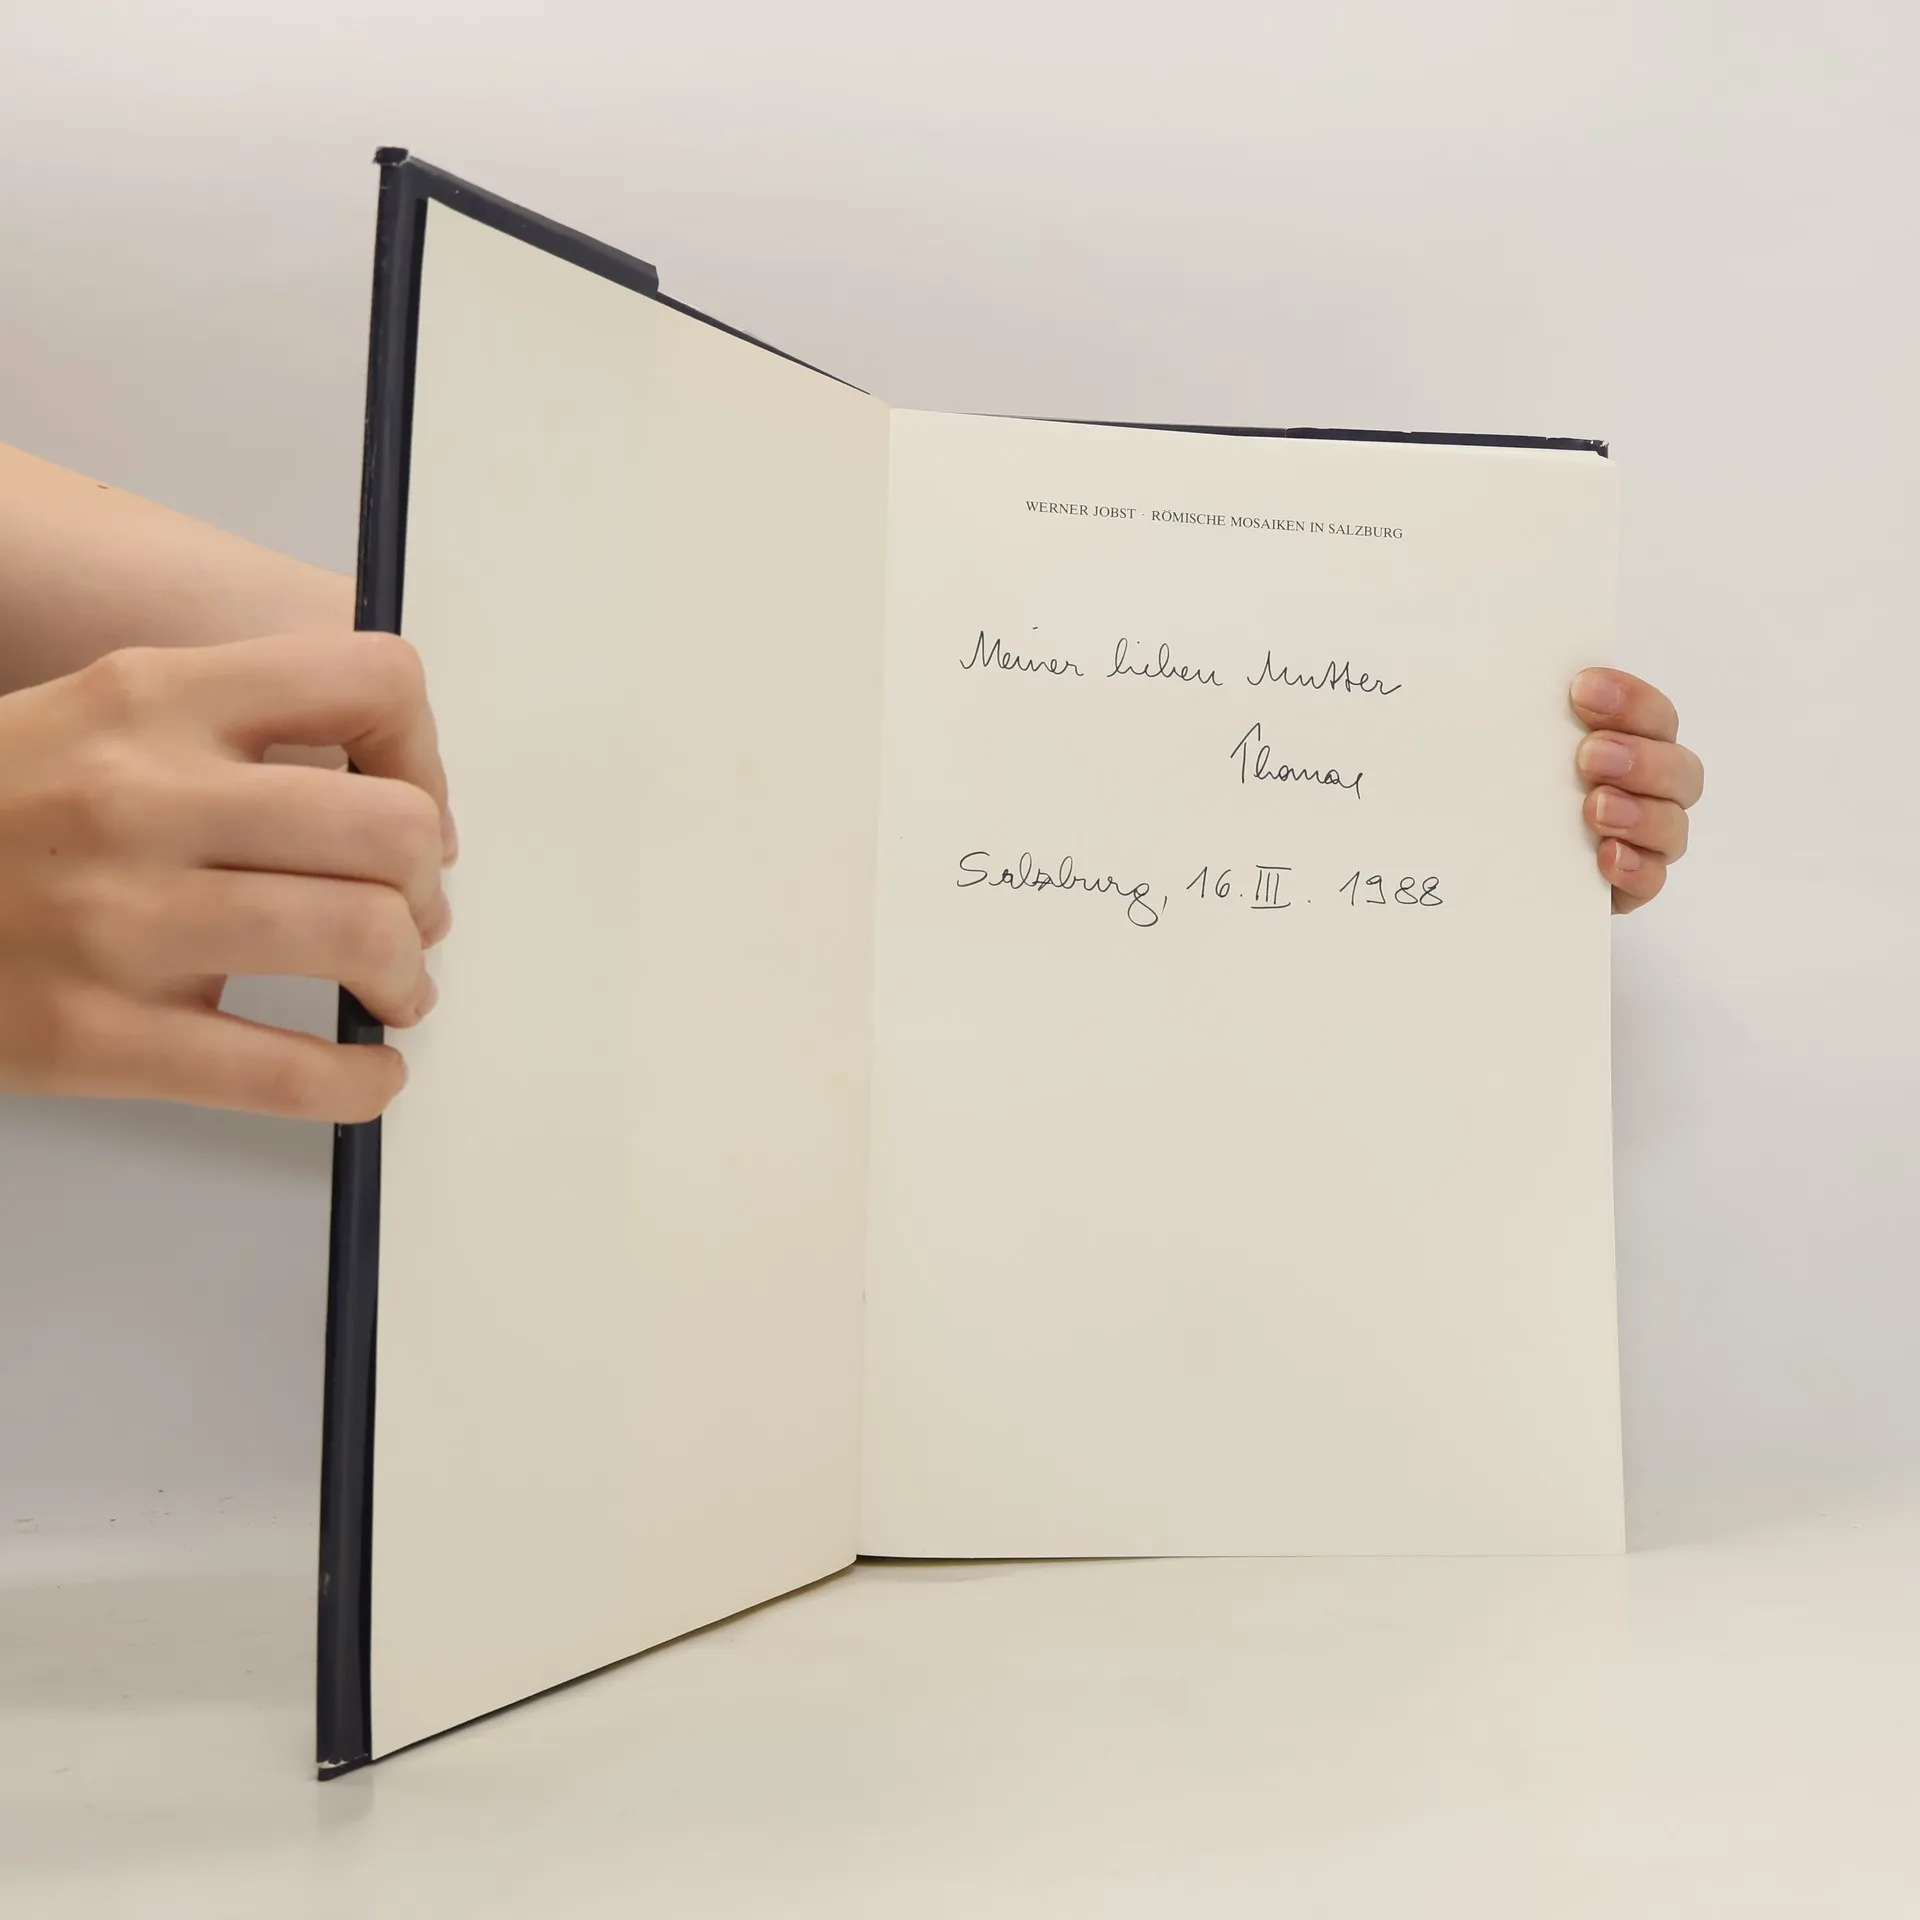 WERNER JOBST · RÖMISCHE MOSAIKEN IN SALZBURG
Meiner lieben Mutter
Thomas
Salzburg, 16. III. 1988